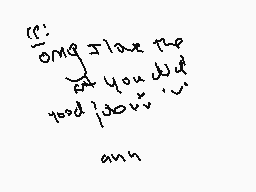 cc:
omg I love the
art you did
good job :v 'v'
ann